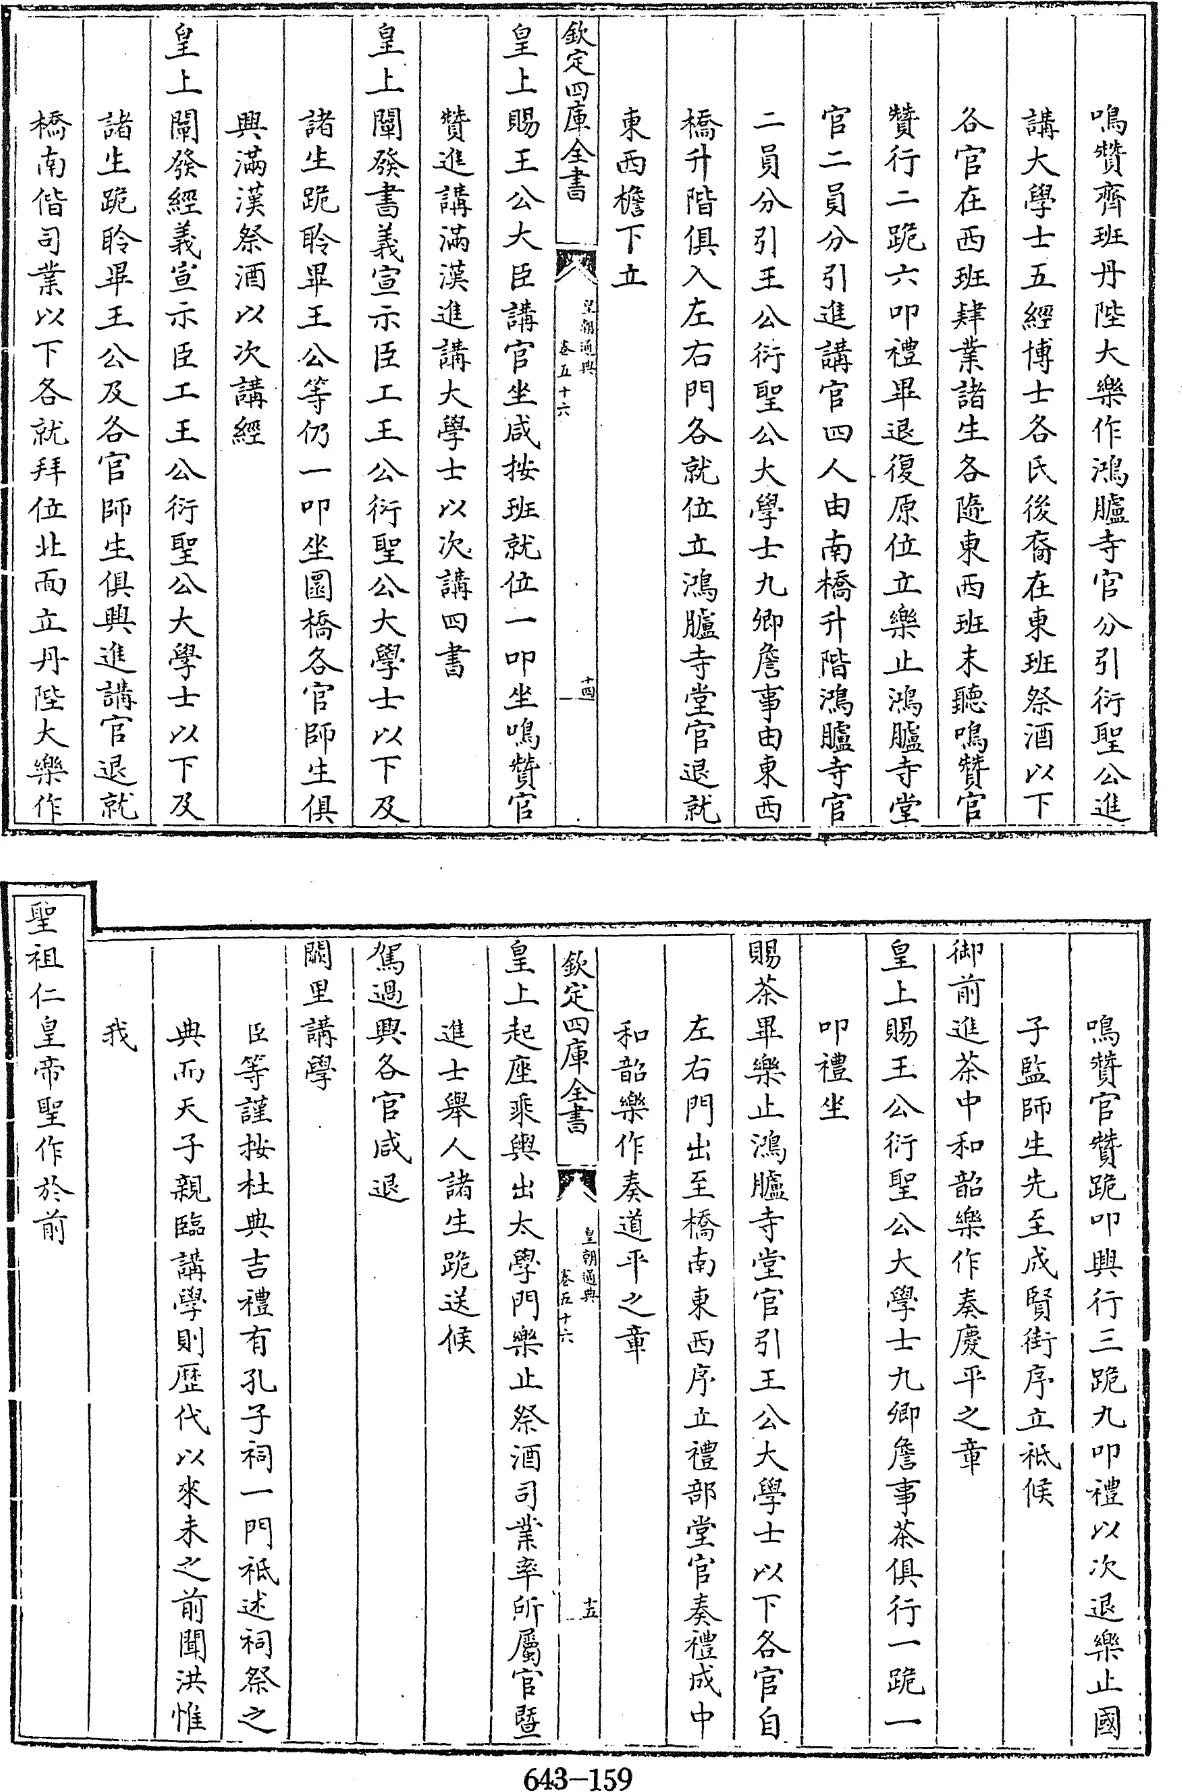 鳴贊齊班丹陛大樂作鴻臚寺官分引衍聖公進
講大學士五經博士各氏後裔在東班祭酒以下
各官在西班肄業諸生各隨東西班末聽鳴贊官
贊行二跪六叩禮畢退復原位立樂止鴻臚寺堂
官二員分引進講官四人由南橋升階鴻臚寺官
二員分引王公衍聖公大學士九卿詹事由東西
橋升階俱入左右門各就位立鴻臚寺堂官退就
東西檐下立
欽定四庫全書
皇朝通典
卷五十六
十四
皇上賜王公大臣講官坐咸按班就位一叩坐鳴贊官
贊進講滿漢進講大學士以次講四書
皇上闡發書義宣示臣工王公衍聖公大學士以下及
諸生跪聆畢王公等仍一叩坐圜橋各官師生俱
興滿漢祭酒以次講經
皇上闡發經義宣示臣工王公衍聖公大學士以下及
諸生跪聆畢王公及各官師生俱興進講官退就
橋南偕司業以下各就拜位北面立丹陛大樂作
鳴贊官贊跪叩興行三跪九叩禮以次退樂止國
子監師生先至成賢街序立祗候
御前進茶中和韶樂作奏慶平之章
皇上賜王公衍聖公大學士九卿詹事茶俱行一跪一
叩禮坐
賜茶畢樂止鴻臚寺堂官引王公大學士以下各官自
左右門出至橋南東西序立禮部堂官奏禮成中
和韶樂作奏道平之章
欽定四庫全書
皇朝通典
卷五十六
十五
皇上起座乘輿出太學門樂止祭酒司業率所屬官暨
進士舉人諸生跪送候
駕過興各官咸退
闕里講學
臣等謹按杜典吉禮有孔子祠一門祗述祠祭之
典而天子親臨講學則歷代以來未之前聞洪惟
我
聖祖仁皇帝聖作於前
643-159